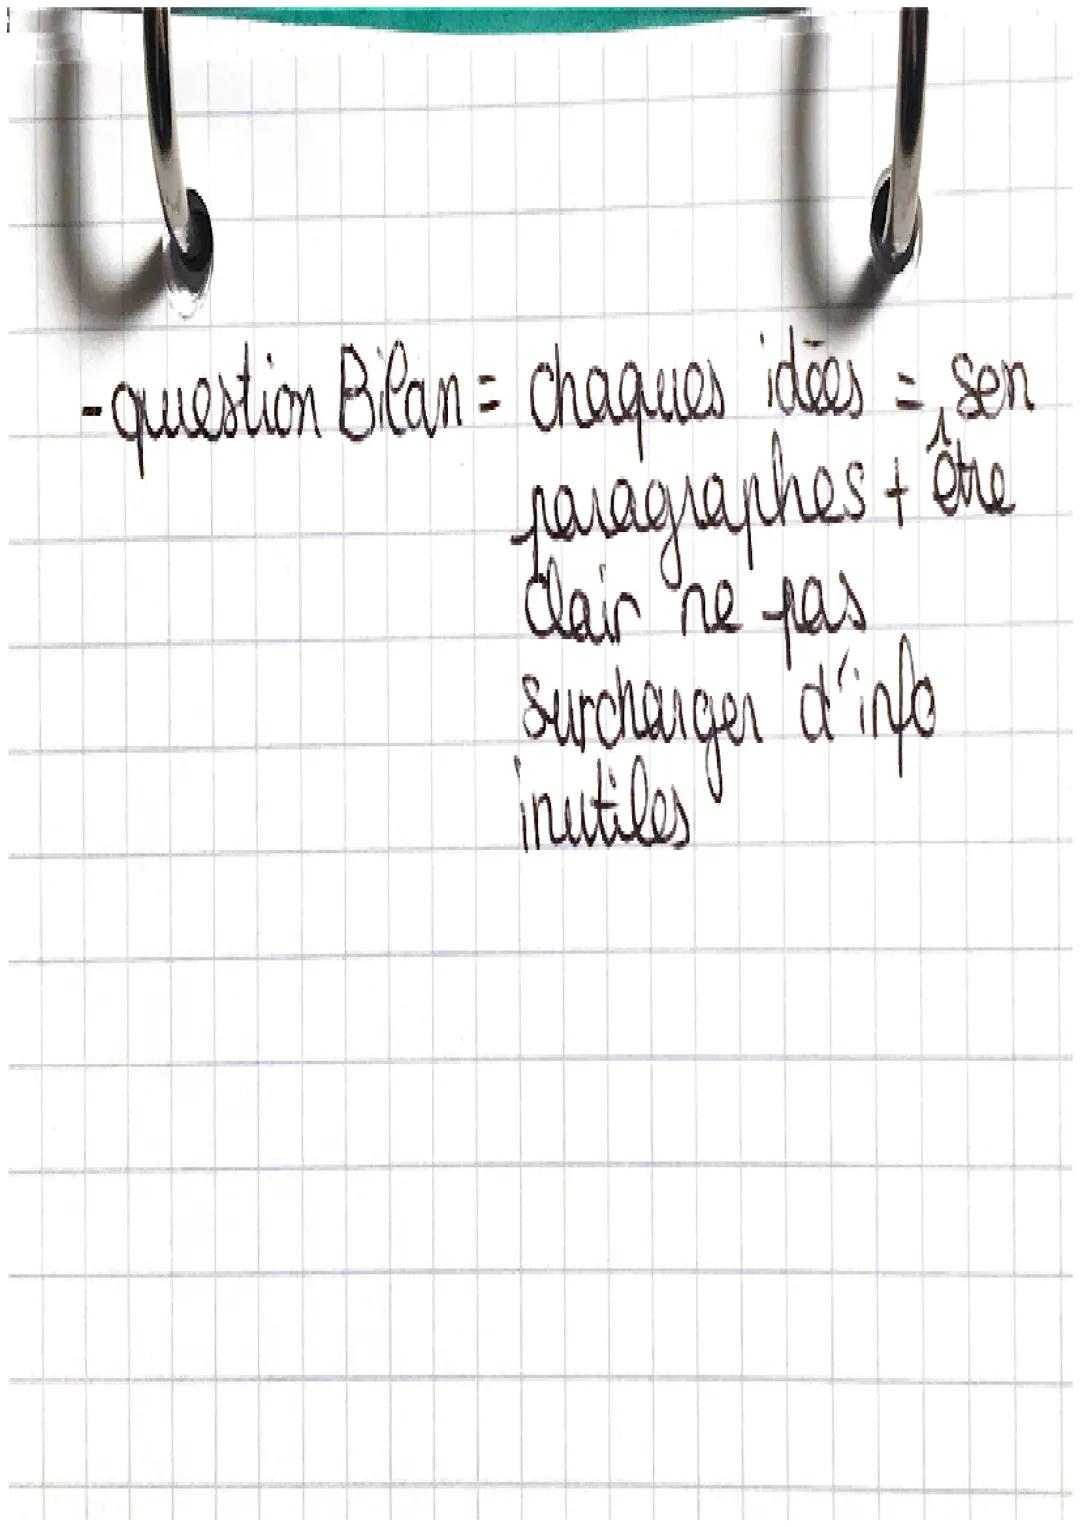 - question Bilan = chaques idées = 1 sen
paragraphes + être
clair ne pas
surcharger d'info
inutiles